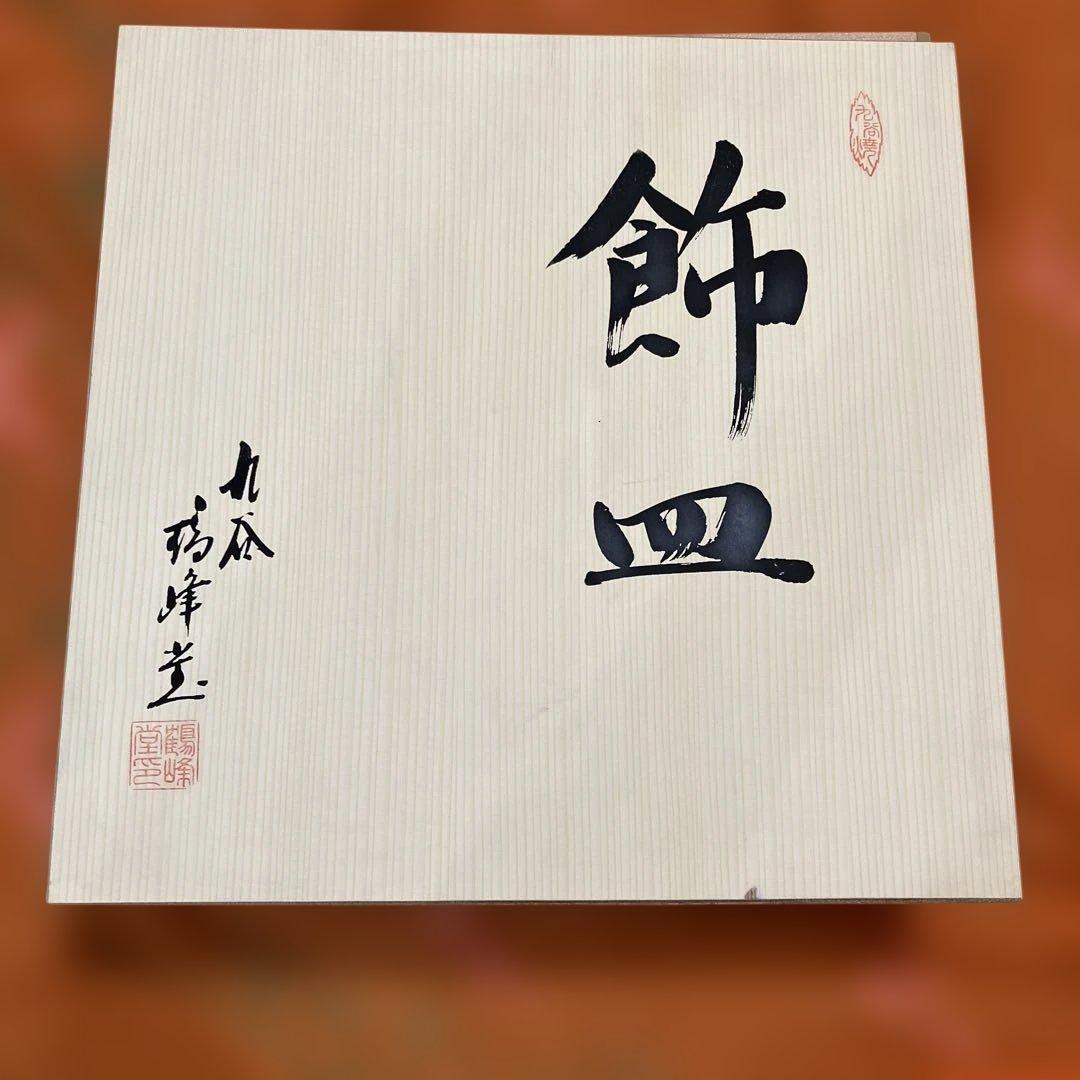 九谷焼
飾皿
九谷
鶴峰堂
鶴峰堂印